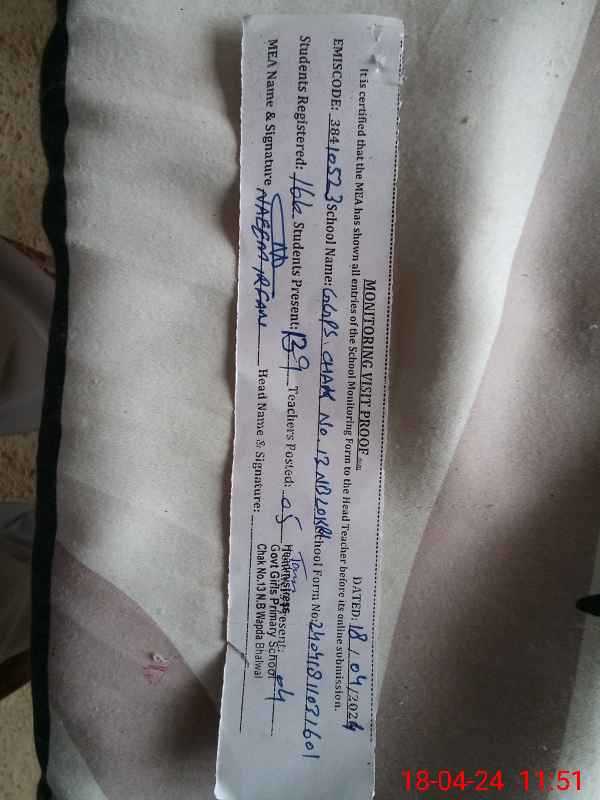 MONITORING VISIT PROOF
DATED: 18/04/2024
It is certified that the MEA has shown all entries of the School Monitoring Form to the Head Teacher before its online submission.
EMISCODE: 38410523 School Name: GGPS CHAK No. 13 NB LOKRI School Form No: 2404181031601
Students Registered: 166 Students Present: 139 Teachers Posted: 05 Present: 04
MEA Name & Signature NAEEM IRFAN Head Name & Signature:
Headmistress
Govt Girls Primary School
Chak No.13 N.B Wapda Bhalwal
18-04-24 11:51